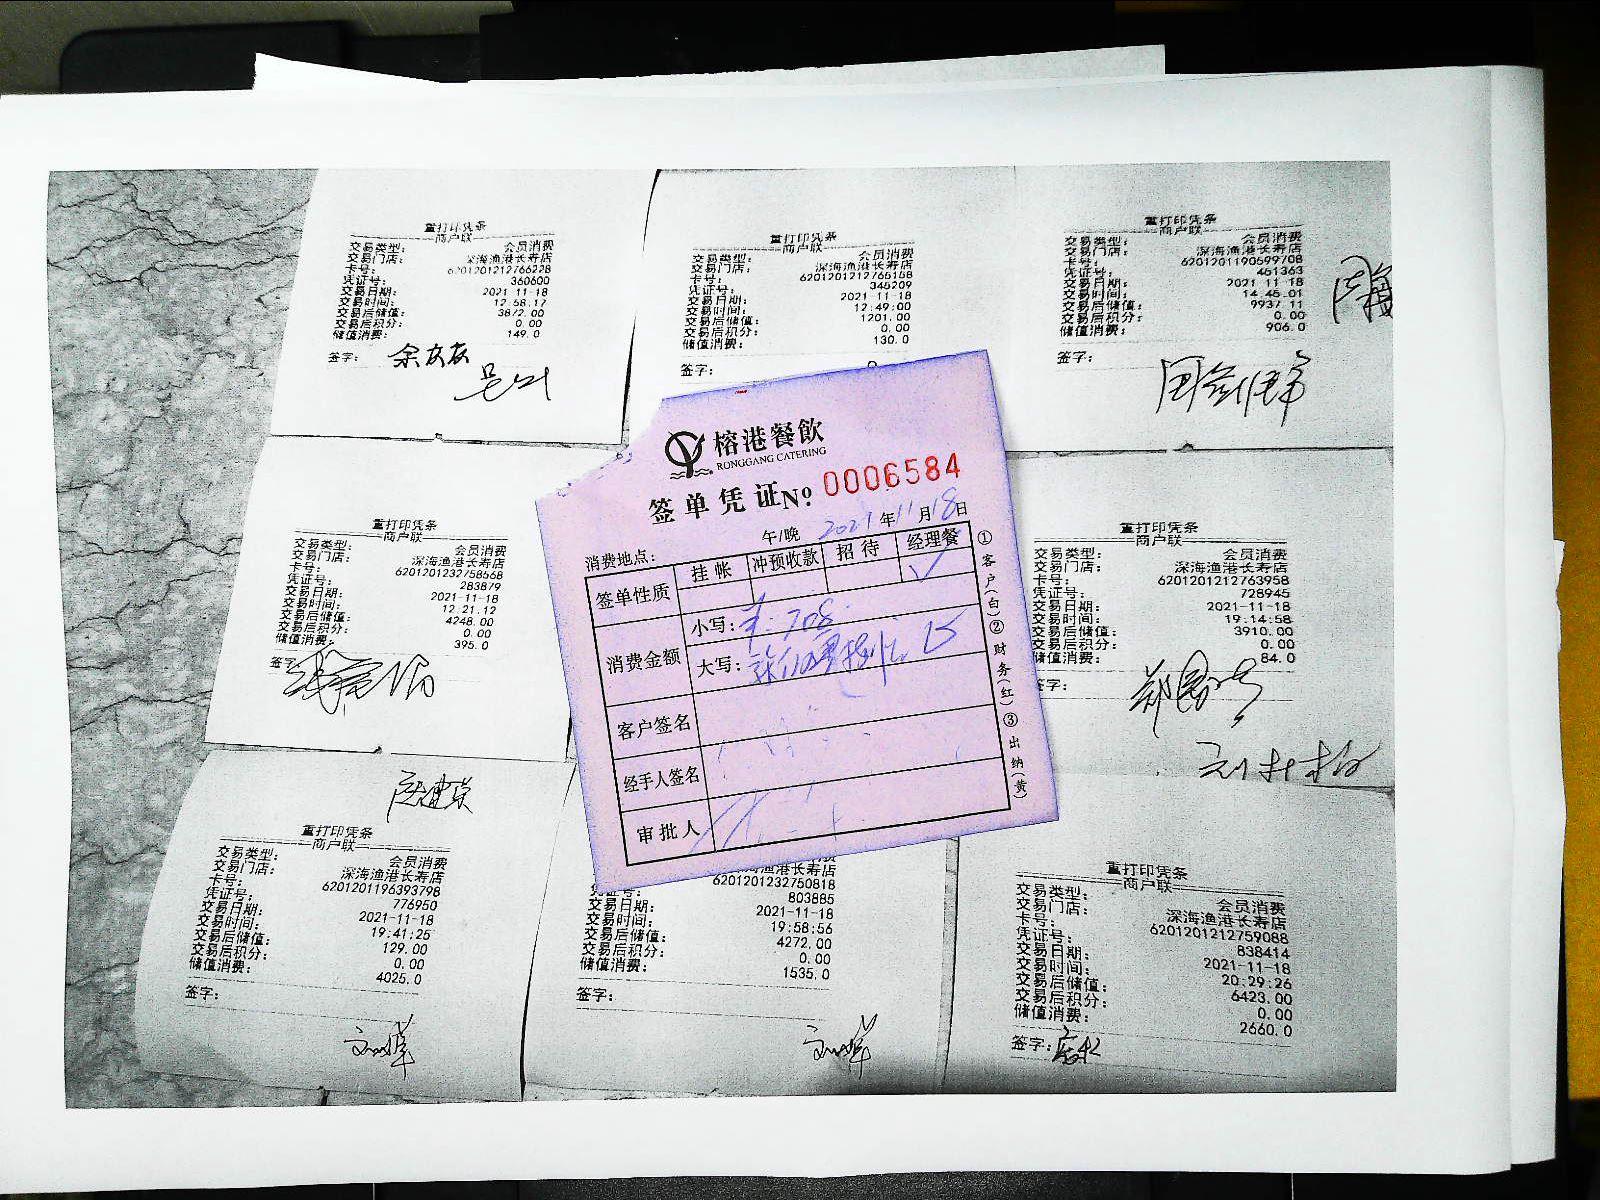 重打印凭条
商户联
交易类型: 会员消费
交易门店: 深海渔港长寿店
卡号: 6201201212766228
凭证号: 360600
交易日期: 2021-11-18
交易时间: 12:58:17
交易后储值: 3872.00
交易后积分: 0.00
储值消费: 149.0
签字:
重打印凭条
商户联
交易类型: 会员消费
交易门店: 深海渔港长寿店
卡号: 6201201212765158
凭证号: 345209
交易日期: 2021-11-18
交易时间: 12:49:00
交易后储值: 1201.00
交易后积分: 0.00
储值消费: 130.0
签字:
重打印凭条
商户联
交易类型: 会员消费
交易门店: 深海渔港长寿店
卡号: 6201201190599708
凭证号: 451363
交易日期: 2021-11-18
交易时间: 14:45:01
交易后储值: 9937.11
交易后积分: 0.00
储值消费: 906.0
签字:
重打印凭条
商户联
交易类型: 会员消费
交易门店: 深海渔港长寿店
卡号: 6201201232758568
凭证号: 283879
交易日期: 2021-11-18
交易时间: 12:21:12
交易后储值: 4248.00
交易后积分: 0.00
储值消费: 395.0
签字
榕港餐飲
RONGGANG CATERING
签单凭证№ 0006584
午/晚 2021年11月18日
消费地点:
签单性质 挂帐 冲预收款 招待 经理餐 ✓
消费金额 小写: 708
大写:
客户签名
经手人签名
审批人
①客户(白)②财务(红)③出纳(黄)
重打印凭条
商户联
交易类型: 会员消费
交易门店: 深海渔港长寿店
卡号: 6201201212763958
凭证号: 728945
交易日期: 2021-11-18
交易时间: 19:14:58
交易后储值: 3910.00
交易后积分: 0.00
储值消费: 84.0
签字:
重打印凭条
商户联
交易类型: 会员消费
交易门店: 深海渔港长寿店
卡号: 6201201196393798
凭证号: 776950
交易日期: 2021-11-18
交易时间: 19:41:25
交易后储值: 129.00
交易后积分: 0.00
储值消费: 4025.0
签字:
深海渔港长寿店
6201201232750818
凭证号: 803885
交易日期: 2021-11-18
交易时间: 19:58:56
交易后储值: 4272.00
交易后积分: 0.00
储值消费: 1535.0
签字:
重打印凭条
商户联
交易类型: 会员消费
交易门店: 深海渔港长寿店
卡号: 6201201212759088
凭证号: 838414
交易日期: 2021-11-18
交易时间: 20:29:26
交易后储值: 6423.00
交易后积分: 0.00
储值消费: 2660.0
签字: